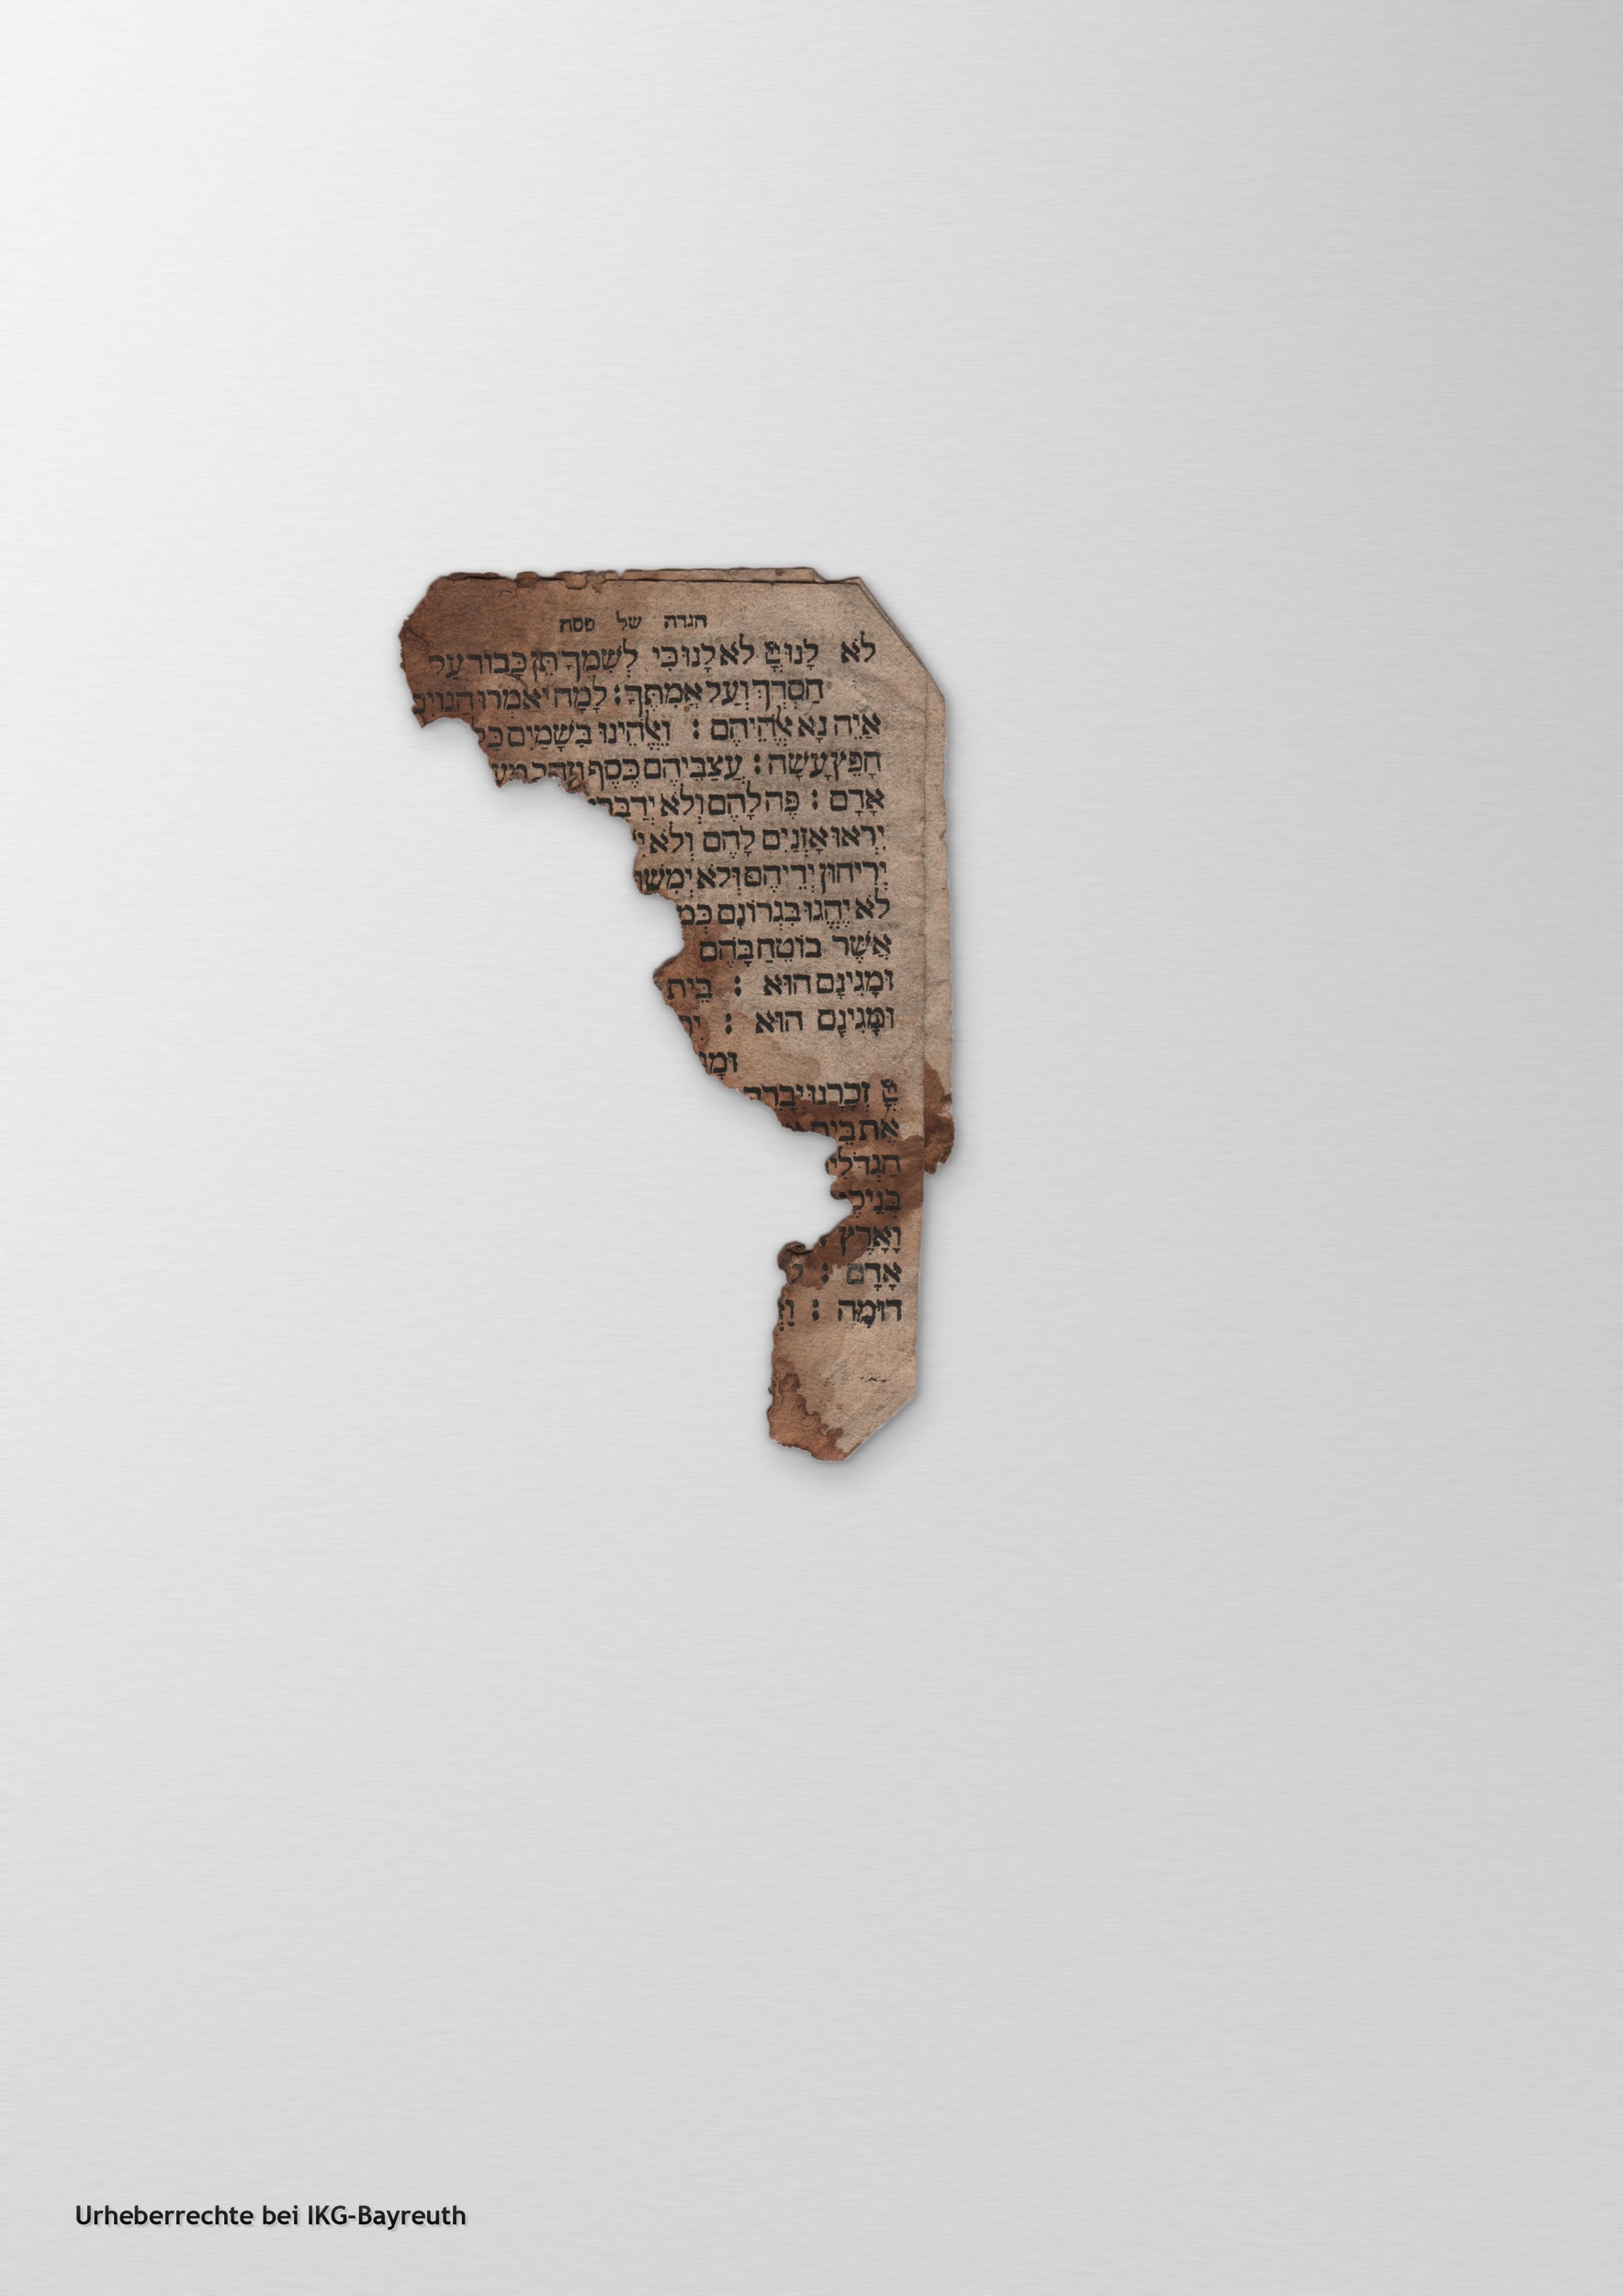 הגדה של פסח
לֹא לָנוּ יְיָ לֹא לָנוּ כִּי לְשִׁמְךָ תֵּן כָּבוֹד עַל
חַסְדְּךָ וְעַל אֲמִתֶּךָ : לָמָּה יֹאמְרוּ הַגּוֹיִם
אַיֵּה נָא אֱלֹהֵיהֶם : וֵאלֹהֵינוּ בַשָּׁמַיִם כֹּל
חָפֵץ עָשָׂה : עֲצַבֵּיהֶם כֶּסֶף וְזָהָב מַעֲ
אָדָם : פֶּה לָהֶם וְלֹא יְדַבֵּרוּ
יִרְאוּ אָזְנַיִם לָהֶם וְלֹא
יְרִיחוּן יְדֵיהֶם וְלֹא יְמִשׁוּ
לֹא יֶהְגּוּ בִּגְרוֹנָם כְּמ
אֲשֶׁר בּוֹטֵחַ בָּהֶם
וּמָגִינָּם הוּא : בֵּית
וּמָגִינָּם הוּא : יִ
וּמָגִ
יְיָ זְכָרָנוּ יְבָרֵךְ
אֶת בֵּית
הַגְּדֹלִי
בְּנֵיכֶ
וָאָרֶץ :
אָדָם : ל
דוּמָה : וַ
Urheberrechte bei IKG-Bayreuth